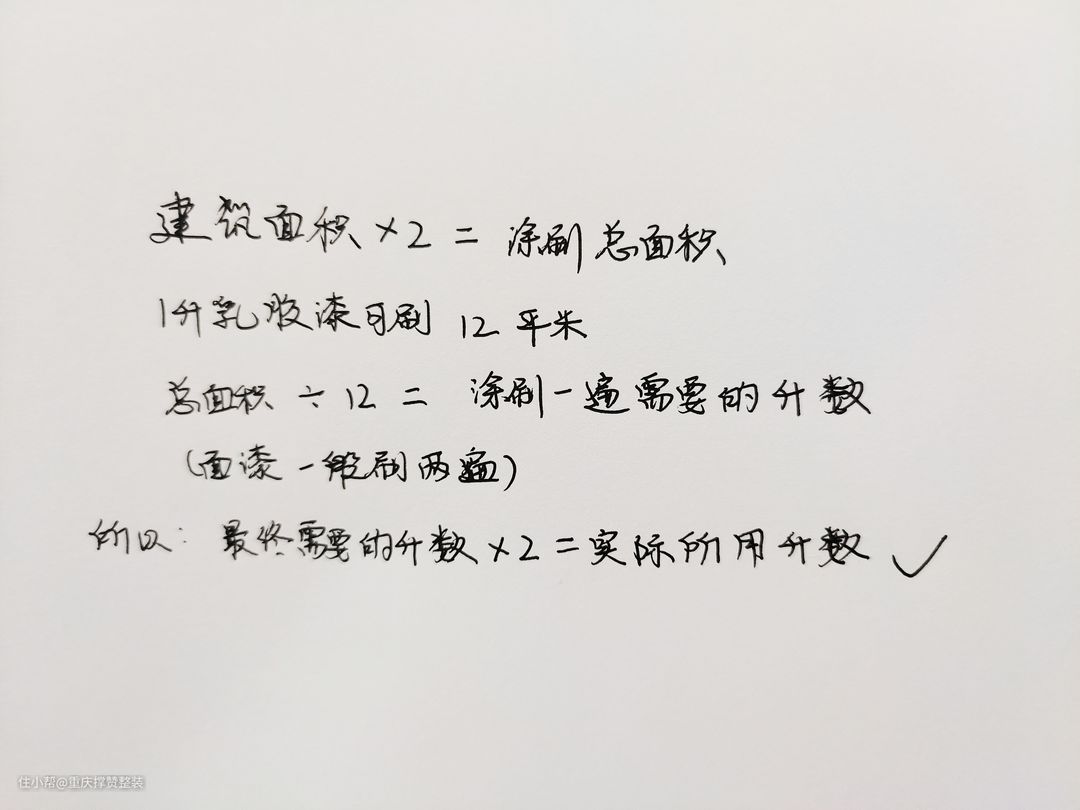 建筑面积×2=涂刷总面积
1升乳胶漆可刷12平米
总面积÷12=涂刷一遍需要的升数
(面漆一般刷两遍)
所以:最终需要的升数×2=实际所用升数✓
住小帮@重庆撑赞整装